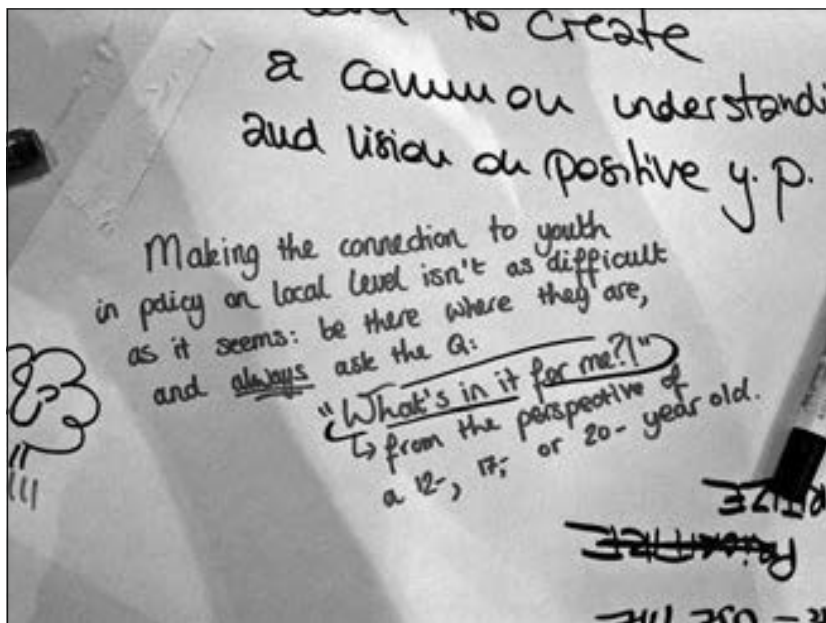 to create
a common understandi
and vision on positive y.p.
Making the connection to youth
in policy on local level isn't as difficult
as it seems: be there where they are,
and always ask the Q:
"What's in it for me?!"
↳ from the perspective of
a 12-, 17-, or 20- year old.